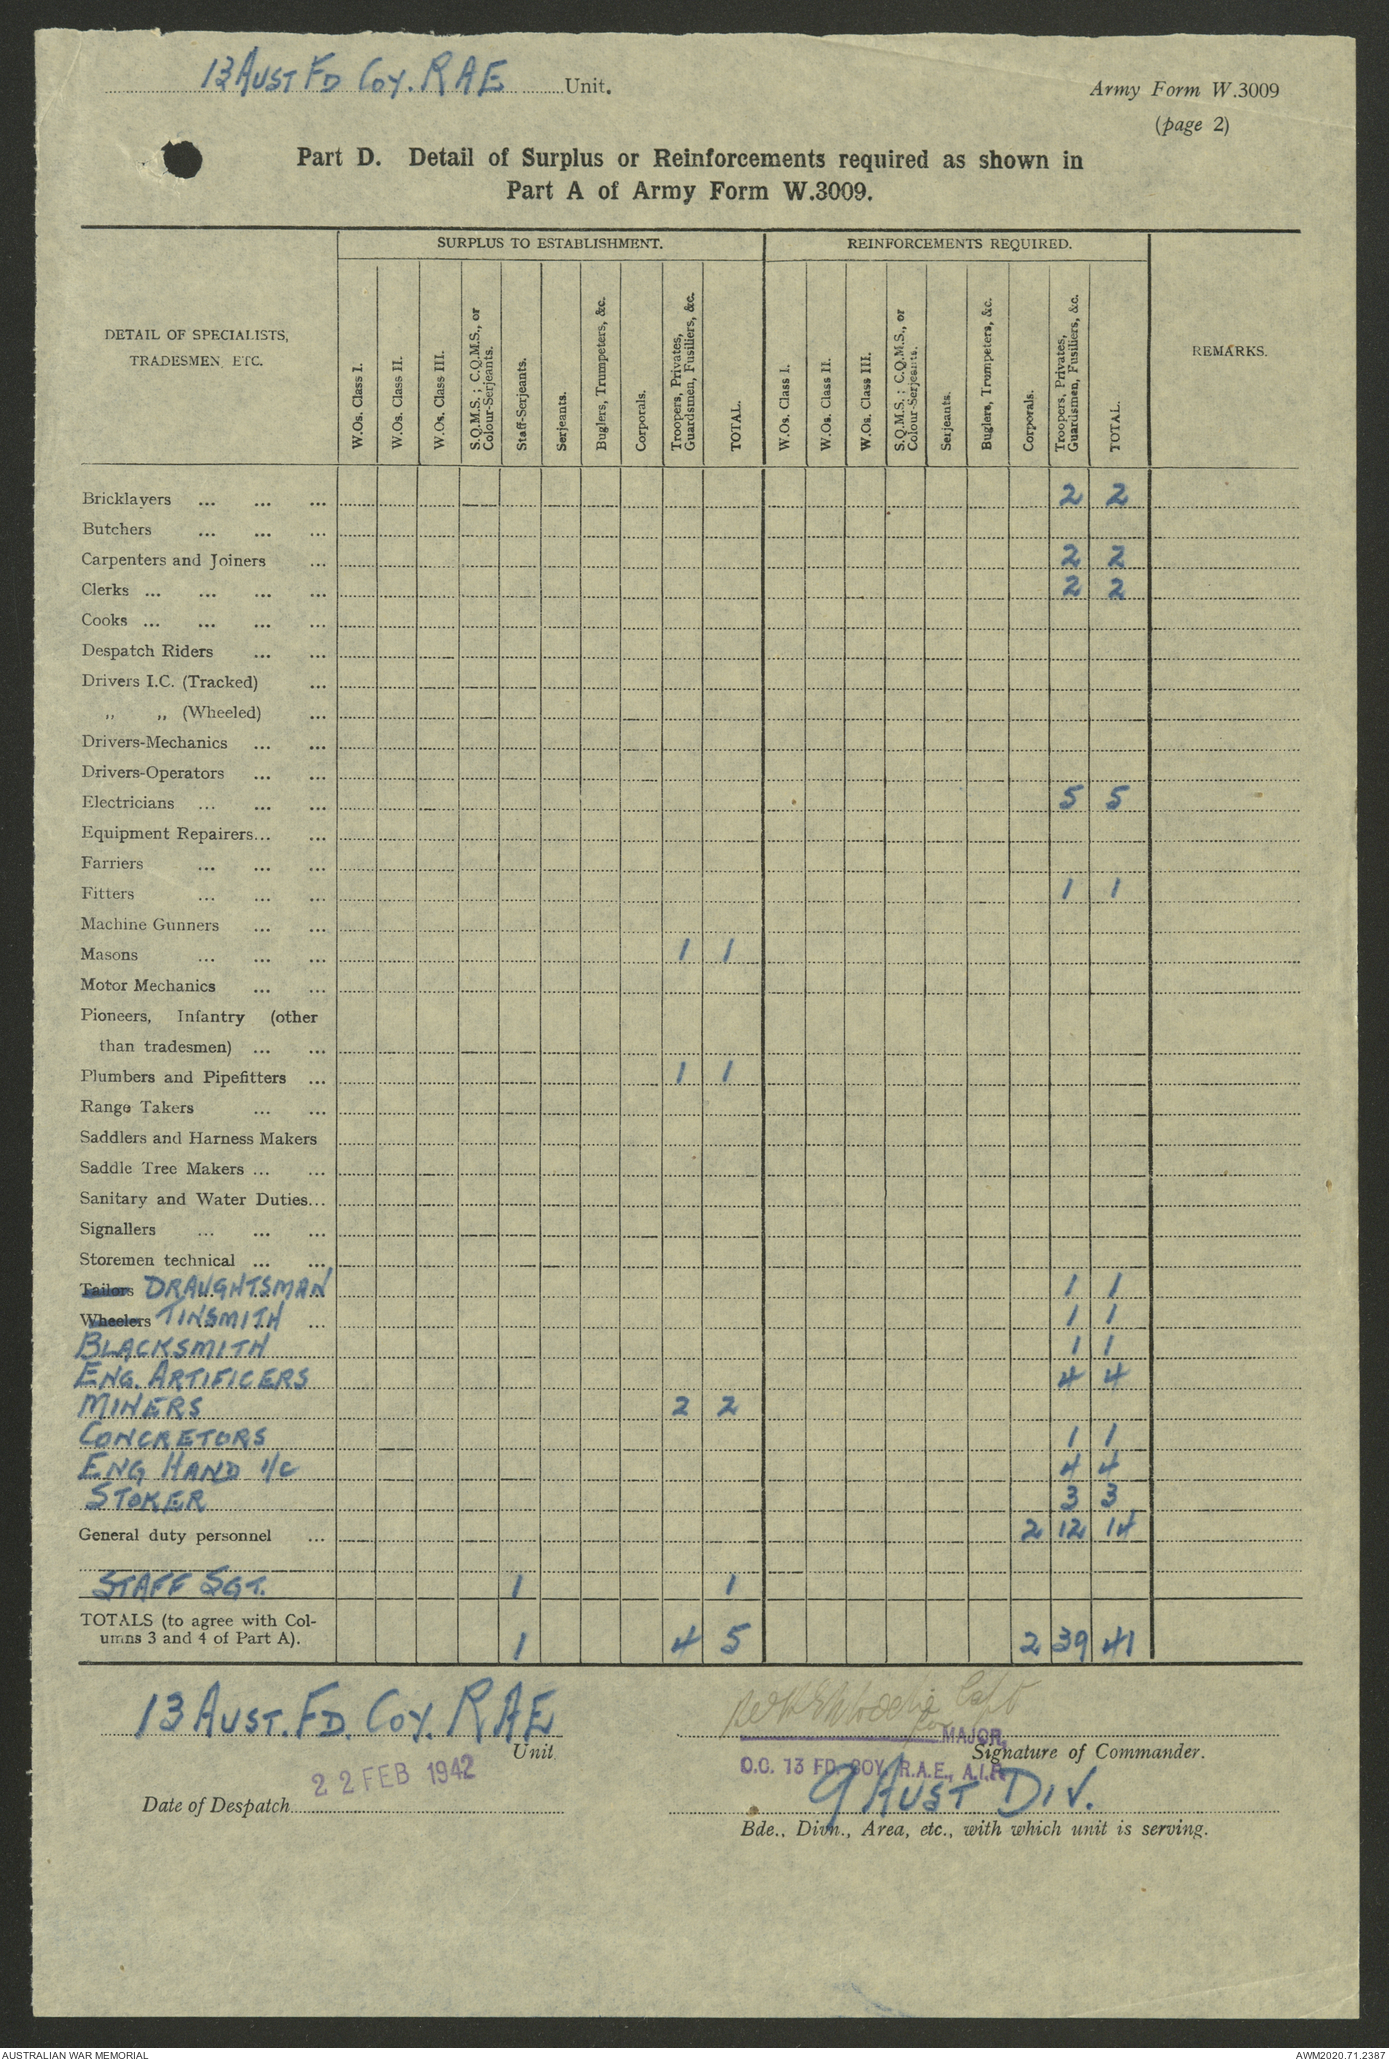 13 AUST FD COY. RAE Unit.
Army Form W.3009
(page 2)
Part D. Detail of Surplus or Reinforcements required as shown in
Part A of Army Form W.3009.
DETAIL OF SPECIALISTS,
TRADESMEN, ETC.
SURPLUS TO ESTABLISHMENT.
W.Os. Class I.
W.Os. Class II.
W.Os. Class III.
S.Q.M.S.; C.Q.M.S., or
Colour-Serjeants.
Staff-Serjeants.
Serjeants.
Buglers, Trumpeters, &c.
Corporals.
Troopers, Privates,
Guardsmen, Fusiliers, &c.
TOTAL.
REINFORCEMENTS REQUIRED.
W.Os. Class I.
W.Os. Class II.
W.Os. Class III.
S.Q.M.S.; C.Q.M.S., or
Colour-Serjeants.
Serjeants.
Buglers, Trumpeters, &c.
Corporals.
Troopers, Privates,
Guardsmen, Fusiliers, &c.
TOTAL.
REMARKS.
Bricklayers ... ... ... 2 2
Butchers ... ... ...
Carpenters and Joiners ... 2 2
Clerks ... ... ... ... 2 2
Cooks ... ... ... ...
Despatch Riders ... ...
Drivers I.C. (Tracked) ...
„ „ (Wheeled) ...
Drivers-Mechanics ... ...
Drivers-Operators ... ...
Electricians ... ... ... 5 5
Equipment Repairers... ...
Farriers ... ... ...
Fitters ... ... ... 1 1
Machine Gunners ... ...
Masons ... ... ... 1 1
Motor Mechanics ... ...
Pioneers, Infantry (other
than tradesmen) ... ...
Plumbers and Pipefitters ... 1 1
Range Takers ... ...
Saddlers and Harness Makers
Saddle Tree Makers ... ...
Sanitary and Water Duties...
Signallers ... ... ...
Storemen technical ... ...
Tailors DRAUGHTSMAN 1 1
Wheelers TINSMITH ... 1 1
BLACKSMITH 1 1
ENG. ARTIFICERS 4 4
MINERS 2 2
CONCRETORS 1 1
ENG HAND I/C 4 4
STOKER 3 3
General duty personnel ... 2 12 14
STAFF SGT. 1 1
TOTALS (to agree with Col-
umns 3 and 4 of Part A). 1 4 5 2 39 41
13 AUST. FD. COY. RAE
Unit
Capt
for
MAJOR,
Signature of Commander.
O.C. 13 FD. COY. R.A.E., A.I.F.
22 FEB 1942
Date of Despatch
9 AUST DIV.
Bde., Divn., Area, etc., with which unit is serving.
AUSTRALIAN WAR MEMORIAL
AWM2020.71.2387